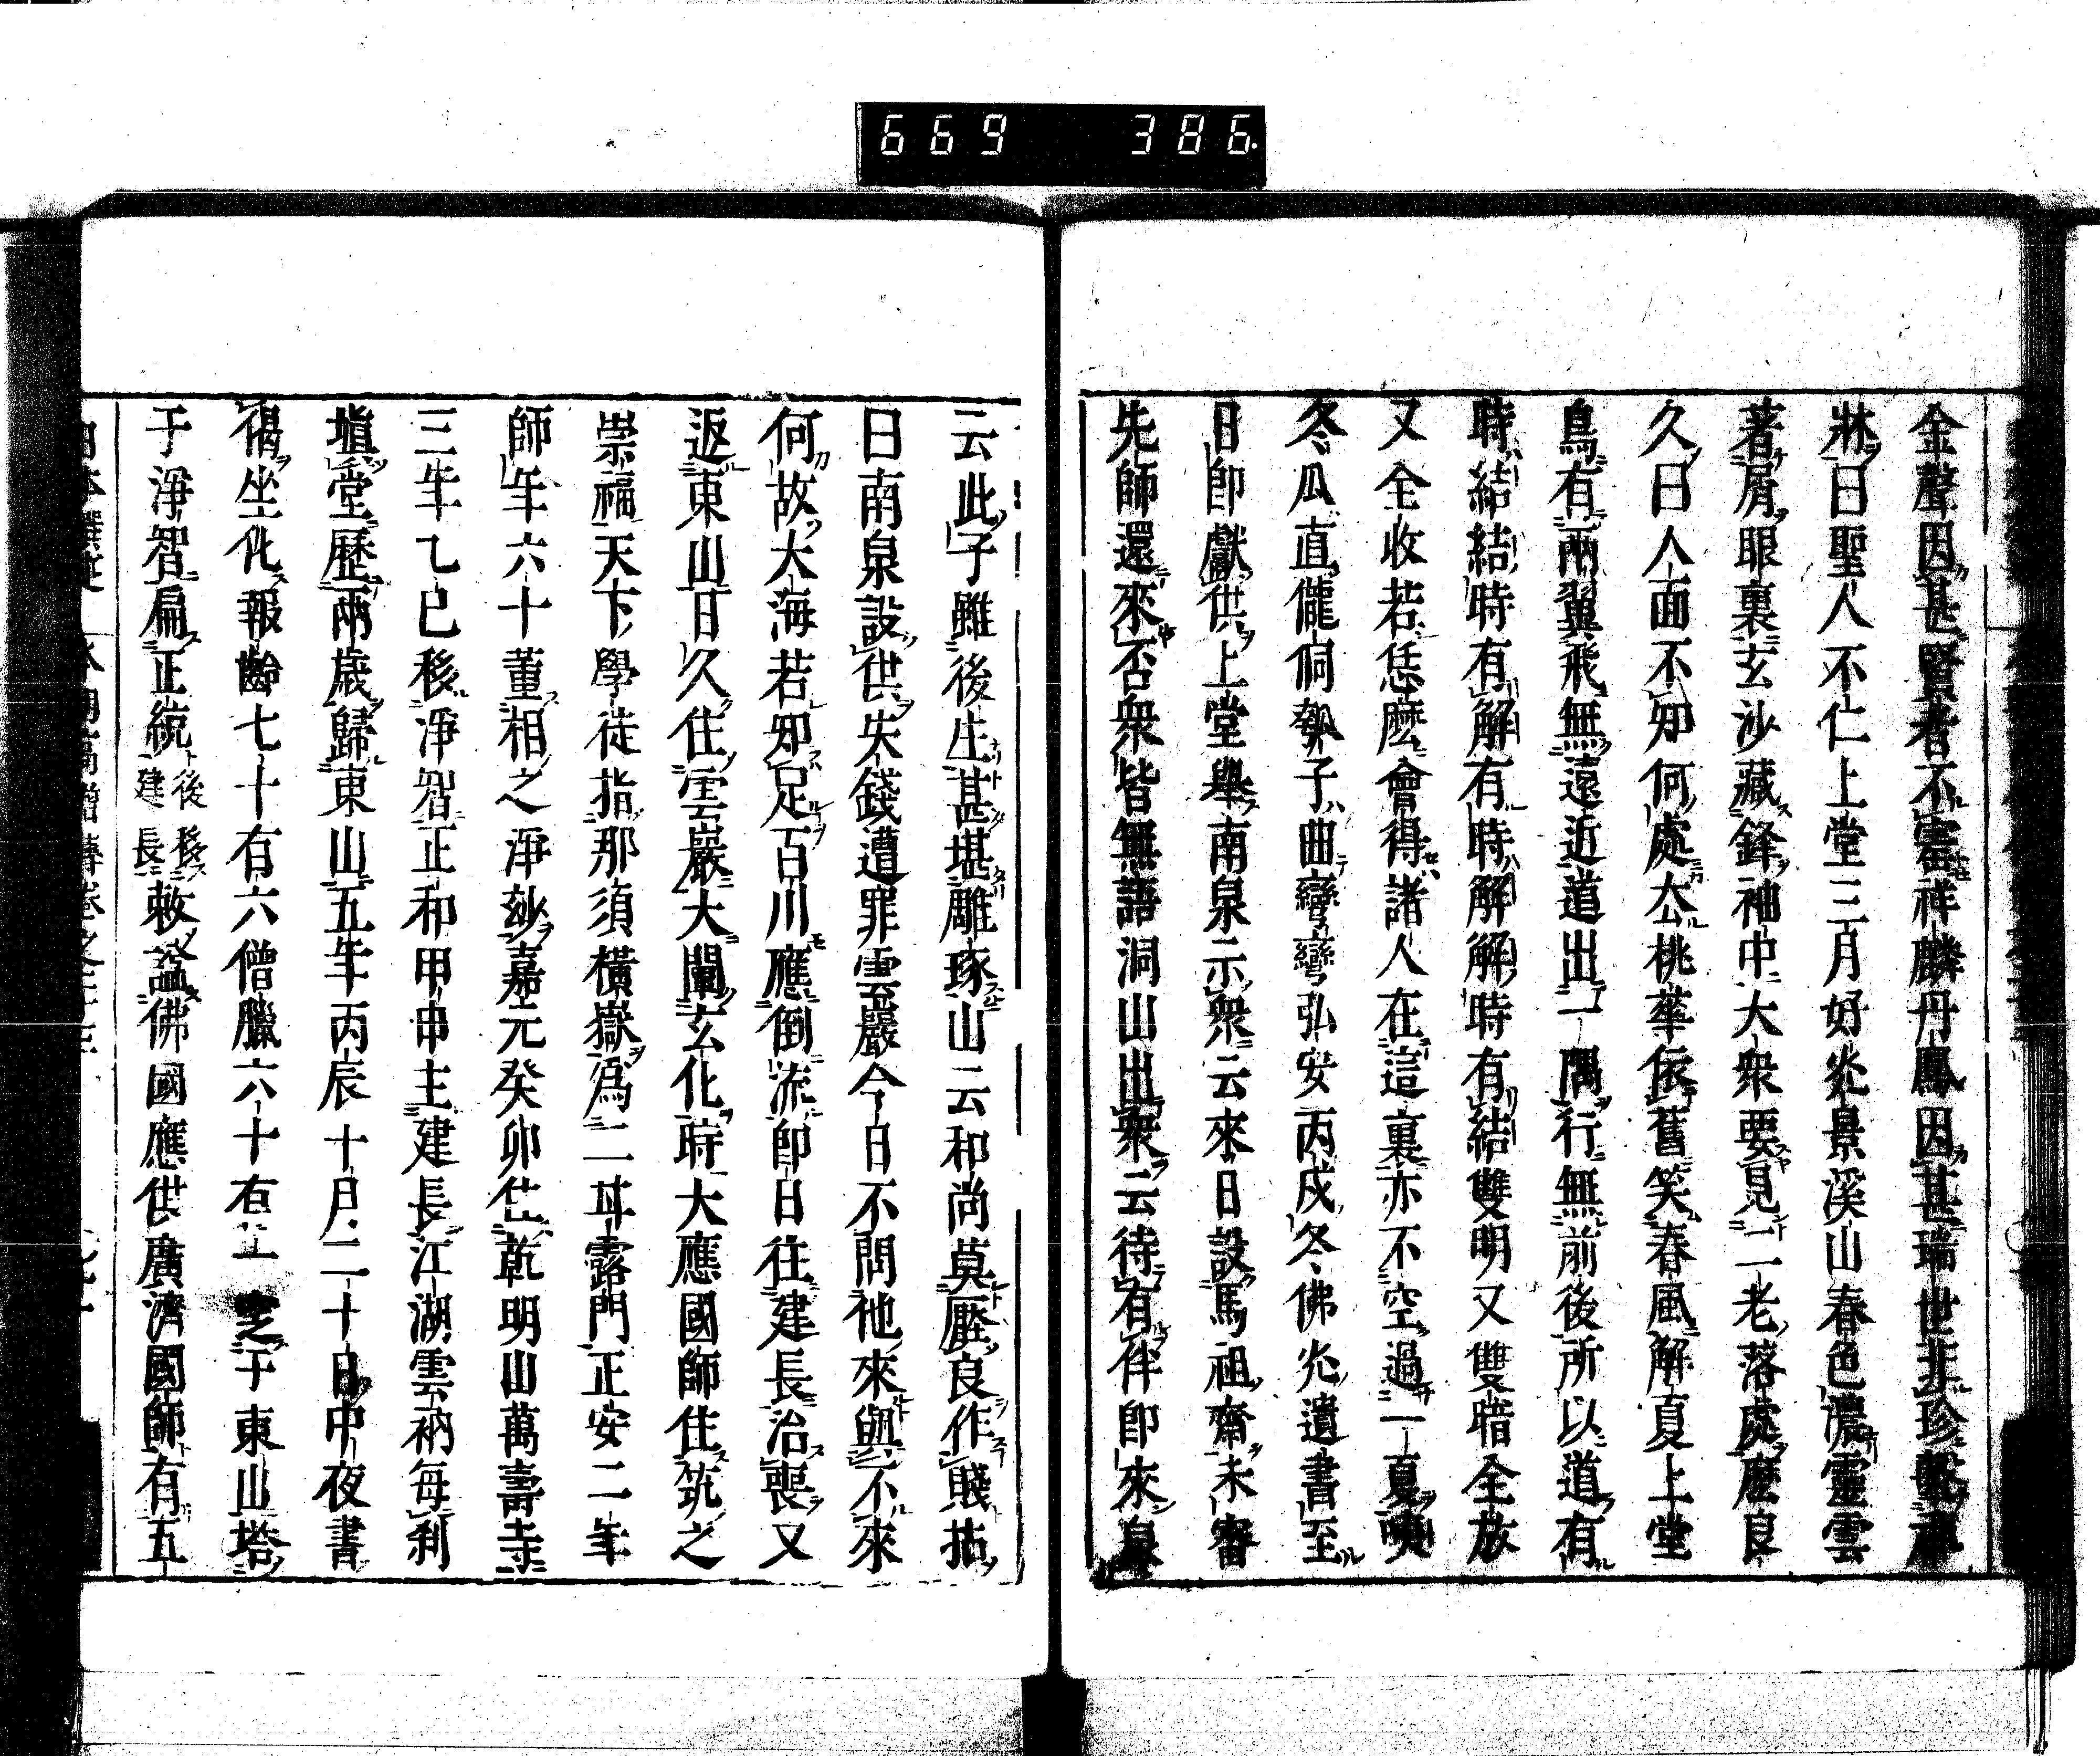 669 386
金聲因甚賢者不審祥麟丹鳳因甚瑞世非珍擊禪
牀曰聖人不仁上堂三月好光景溪山春色濃靈雲
著屑眼裏玄沙藏鋒袖中大衆要見二老落處麽良
久曰人面不知何處去桃華依舊笑春風解夏上堂
鳥有兩翼飛無遠近道出一隅行無前後所以道有
時結結時有解有時解解時有結雙明又雙暗全放
又全收若恁麽會得諸人在這裏亦不空過一夏喚
冬瓜直儱侗瓠子曲彎彎弘安丙戌冬佛光遺書至
日卽獻供上堂擧南泉示衆云來日設馬祖齋未審
先師還來否衆皆無語洞山出衆云待有伴卽來泉
云此子雖後生甚堪雕琢山云和尚莫壓良作賤拈
曰南泉設供失錢遭罪雲巖今日不問他來與不來
何故大海若知足百川應倒流卽日往建長治喪又
返東山日久住雲巖大闡玄化時大應國師住筑之
崇福天下學徒指那須橫嶽爲二甘露門正安二年
師年六十董相之淨妙嘉元癸卯住乾明山萬壽寺
三年乙巳移淨智正和甲申主建長江湖雲衲每刹
塡堂歷兩歲歸東山五年丙辰十月二十日中夜書
偈坐化報齡七十有六僧臘六十有 于東山塔
于淨智扁正統後移建長敕諡佛國應供廣濟國師有五